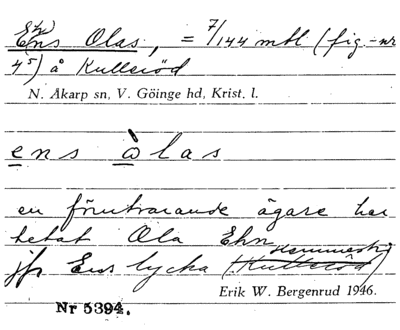 Ens Olas, = 7/144 mtl (fig.-nr
4⁵) å Kulleröd
N. Åkarp sn, V. Göinge hd, Krist. l.
ens òlas
en förutvarande ägare har
hetat Ola Ehn
jfr Ens lycka (Kulleröd)
Erik W. Bergenrud 1946.
Nr 5394.